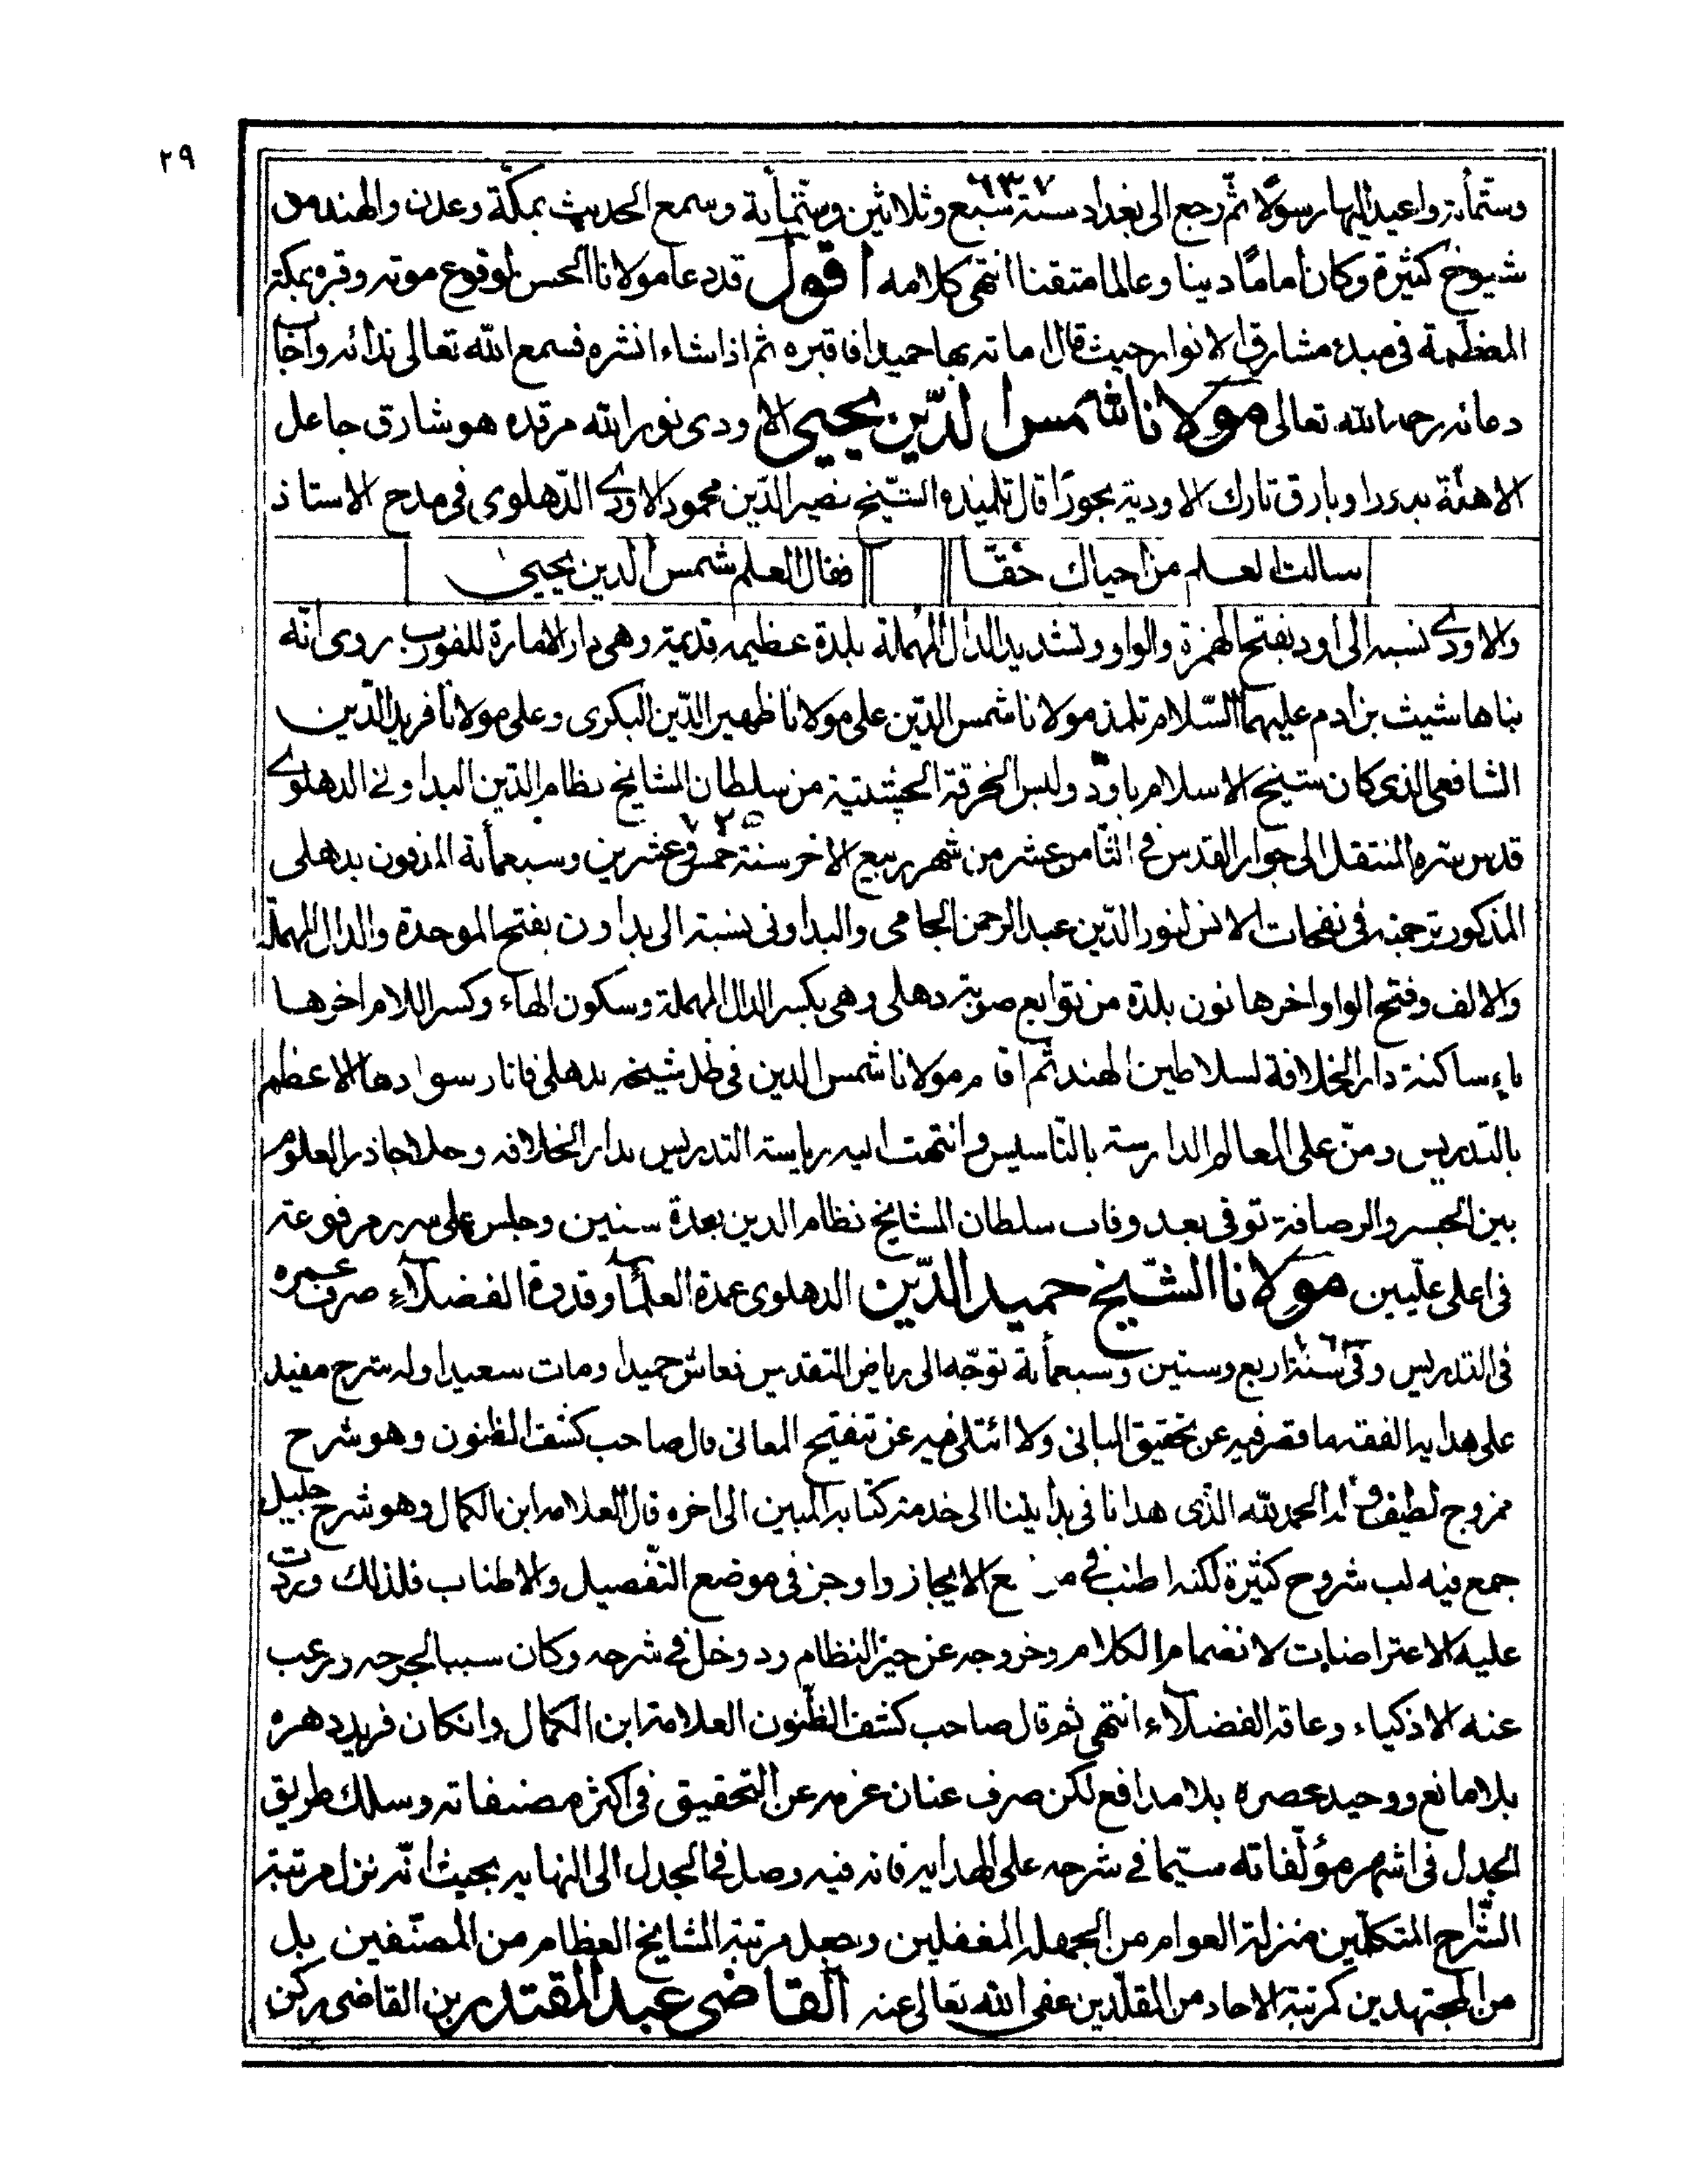 ٢٩
وستمأة واعيد اليها رسولا ثم رجع الى بغداد سنة سبع وثلاثين وستمأية وسمع الحديث بمكة وعدن والهند من
٦٣٧
شيوخ كثيرة وكان اماما دينا وعالما متقنا انتهى كلامه اقول قد دعا مولانا الحسن لوقوع موته وقبره بمكة
المعظمة فى مبدء مشارق الانوار حيث قال اماته بها حميدا فاقبره ثم اذا شاء انشره فسمع الله تعالى ندائه واجاب
دعائه رحمه الله تعالى مولانا شمس الدين يحيى الاودى نور الله مرقده هو شارق جاعل
الاهلة بدورا وبارق تارك الاودية بحورا قال تلميذه الشيخ نصير الدين محمود الاودى الدهلوى فى مدح الاستاذ
سالت العلم من احياك حقا فقال العلم شمس الدين يحيى
والاودى نسبه الى اود بفتح الهمزة والواو وتشديد الدال المهملة بلدة عظيمه قديمة وهى دار الامارة للفورب روى انه
بناها شيث بن ادم عليهما السلام تلمذ مولانا شمس الدين على مولانا ظهير الدين البكرى وعلى مولانا فريد الدين
الشافعى الذى كان شيخ الاسلام باود ولبس الخرقة الچشتية من سلطان المشايخ نظام الدين البداونى الدهلوى
قدس سره المنتقل الى جوار القدس فى الثامن عشر من شهر ربيع الاخر سنة خمس وعشرين وسبعمأية المدفون بدهلى
٧٢٥
المذكور ترجمته فى نفحات الانس لنور الدين عبد الرحمن الجامى والبداونى نسبة الى بداون بفتح الموحدة والدال المهملة
والالف وفتح الواو اخرها نون بلدة من توابع صوبة دهلى وهى بكسر الدال المهملة وسكون الهاء وكسر اللام اخرها
ياء ساكنة دار الخلافة لسلاطين الهند ثم اقام مولانا شمس الدين فى ظل شيخه بدهلى فانار سوادها الاعظم
بالتدريس ومن على المعالم الدارسة بالتاسيس وانتهت اليه رياسة التدريس بدار الخلافه وحلا جاذر العلوم
بين الجسر والرصافة توفى بعد وفات سلطان المشايخ نظام الدين بعدة سنين وجلس على سرر مرفوعة
فى اعلى عليين مولانا الشيخ حميد الدين الدهلوى عمدة العلماء وقدوة الفضلاء صرف عمره
فى التدريس وفى سنة اربع وستين وسبعمأية توجه الى رياض التقديس فعاش حميدا ومات سعيدا وله شرح مفيد
على هدايه الفقه ما قصر فيه عن تحقيق المبانى ولا ائتلى فيه عن تنقيح المعانى قال صاحب كشف الظنون وهو شرح
ممزوج لطيف اوله الحمد لله الذى هدانا فى بدايتنا الى خدمة كتابه المبين الى اخره قال العلامه ابن الكمال وهو شرح جليل
جمع فيه لب شروح كثيرة لكنه اطنب فى موضع الايجاز واوجز فى موضع التفصيل والاطناب فلذلك وردت
عليه الاعتراضات لانضمام الكلام وخروجه عن حيز النظام ردوخل فى شرحه وكان سببا لجرحه ورعب
عنه الاذكياء وعاقه الفضلاء انتهى ثم قال صاحب كشف الظنون العلامة ابن الكمال وانكان فريد دهره
بلا مانع ووحيد عصره بلا مدافع لكن صرف عنان عزمه عن التحقيق فى اكثر مصنفاته وسلك طريق
الجدل فى اشهر مؤلفاته سيما فى شرحه على الهدايه فانه فيه وصل فى الجدل الى النهايه بحيث انه نزل مرتبة
الشراح المتكلمين منزلة العوام من الجهلة المغفلين وجعل مرتبة المشايخ العظام من المصنفين بل
من المجتهدين كمرتبة الاحاد من المقلدين عفى الله تعالى عنه القاضى عبد المقتدر بن القاضى ركن